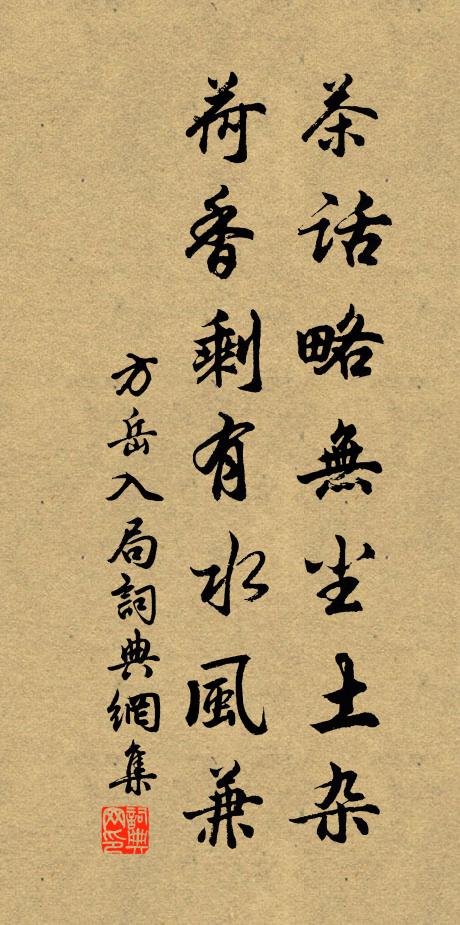 茶話略無尘土杂
荷香剩有水風兼
方岳入局詞典網集
詞典网印